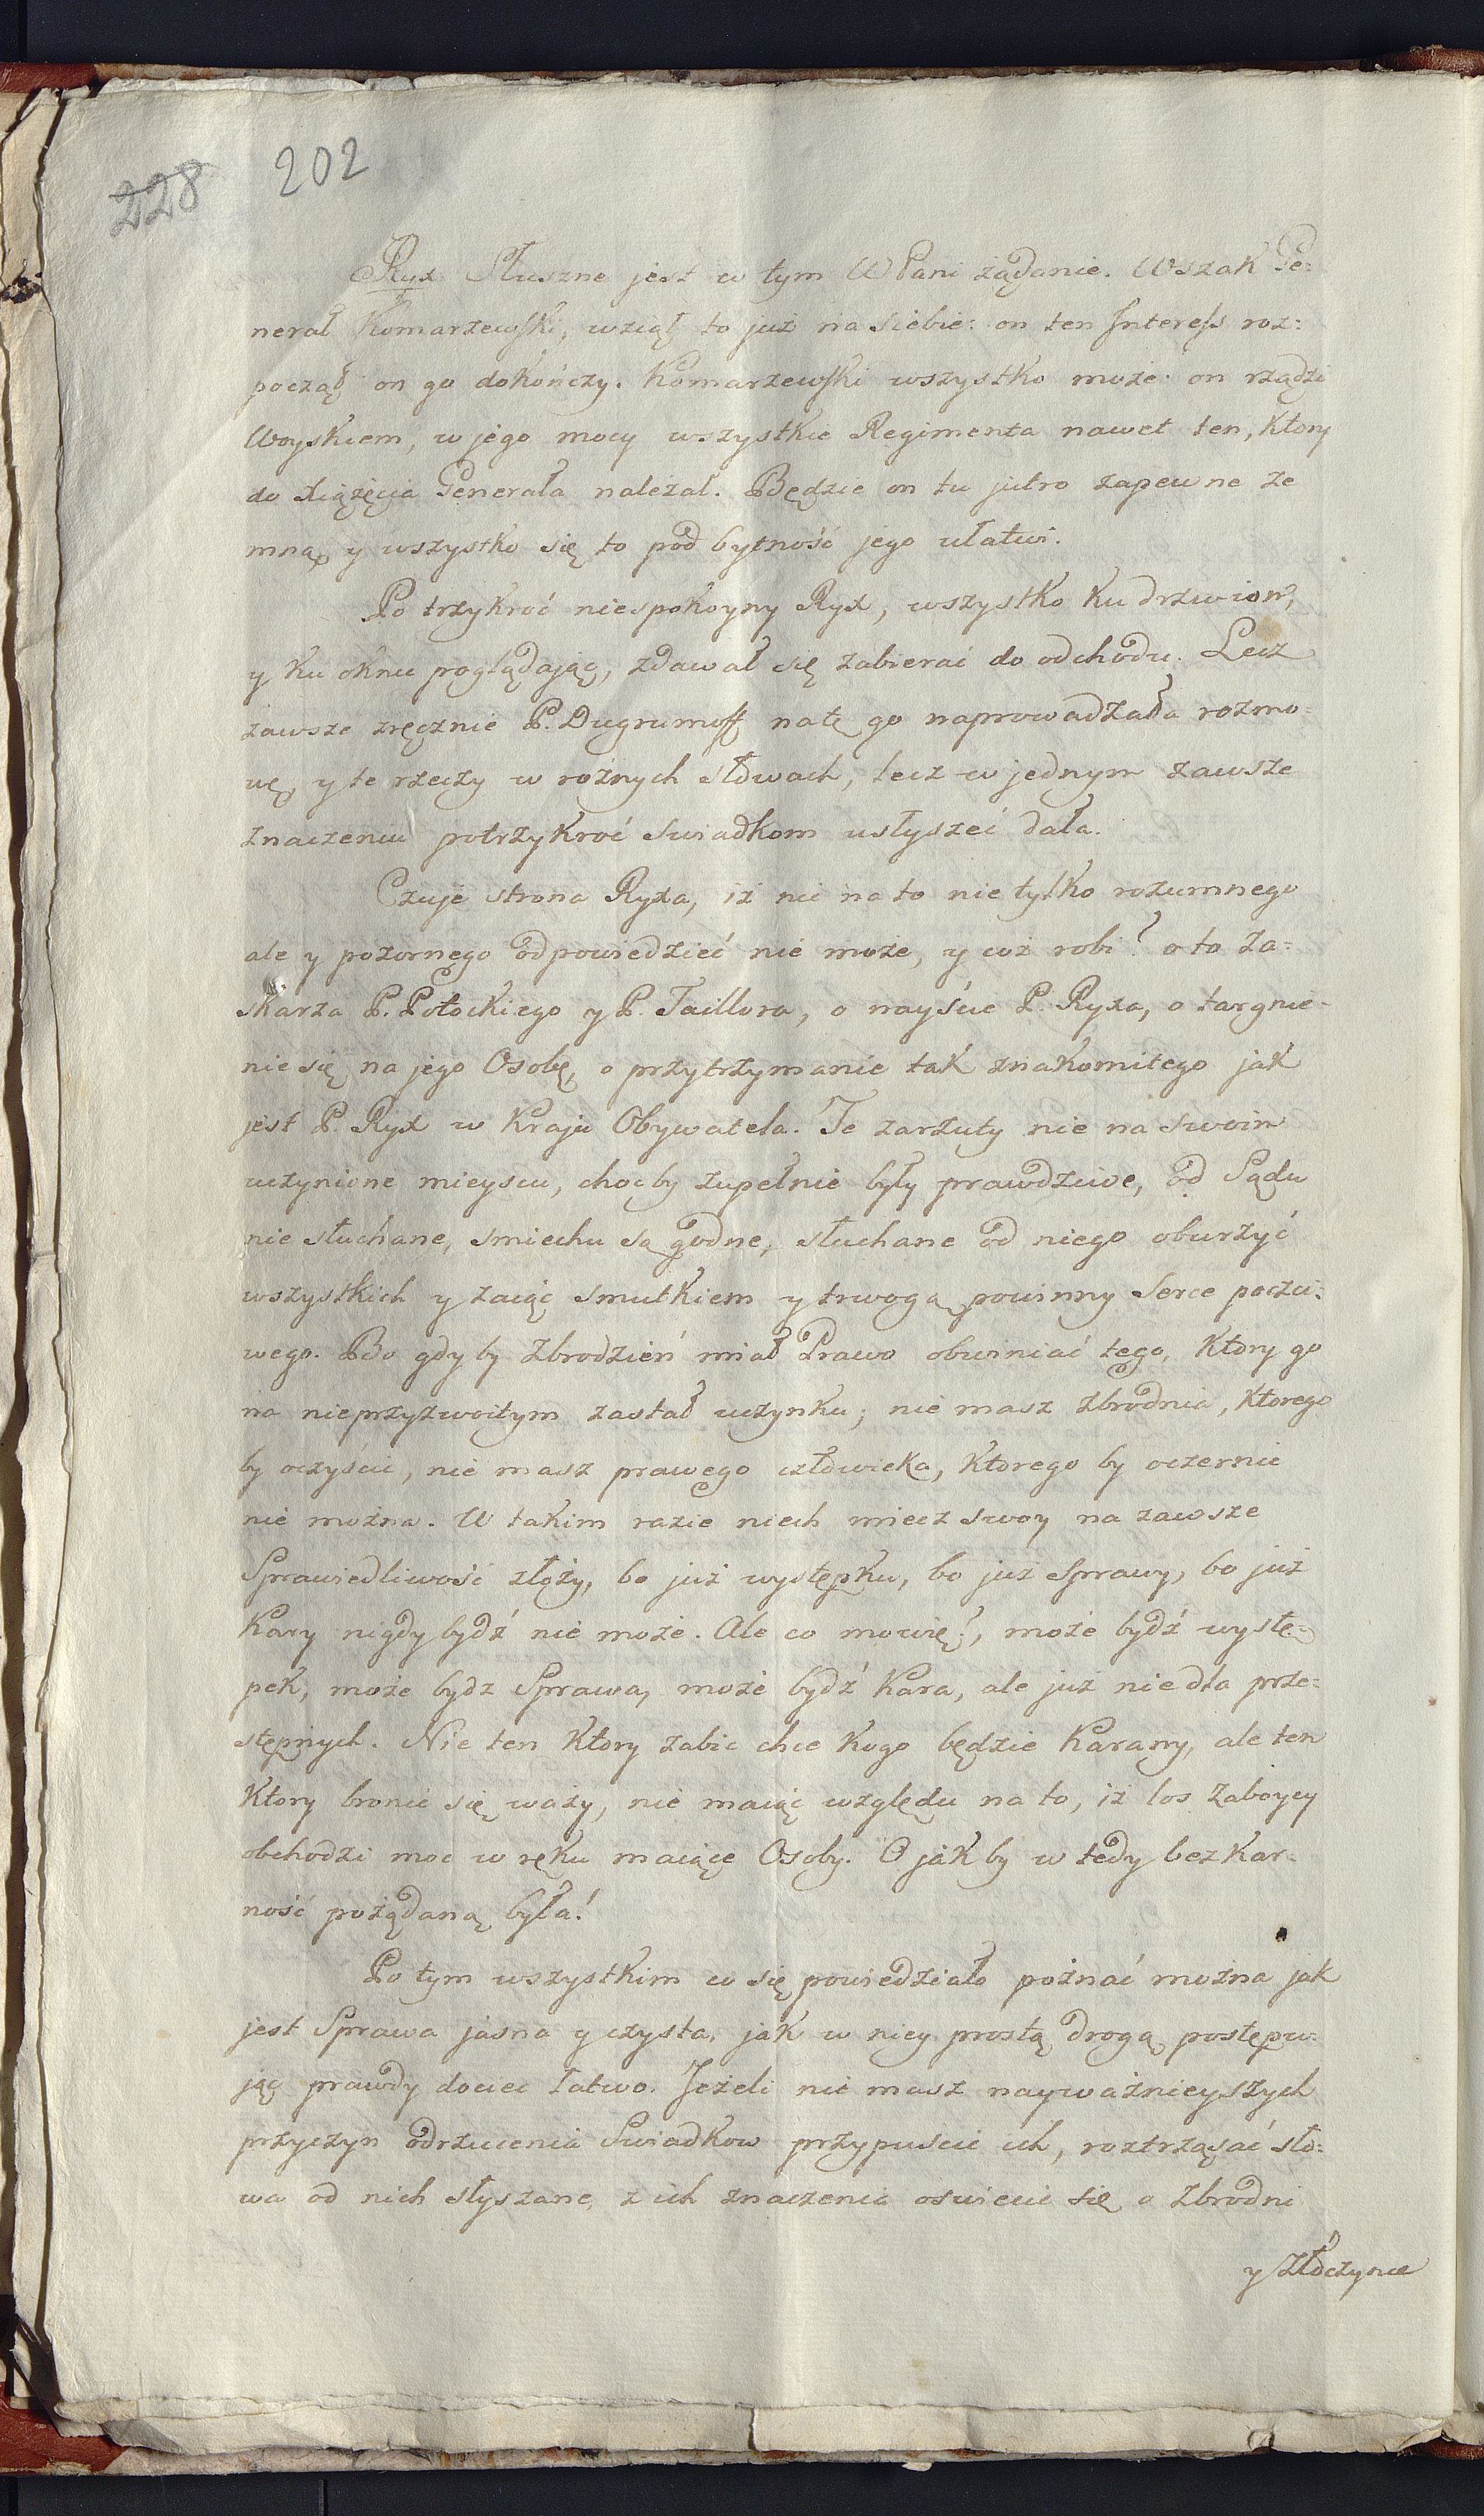 228 202
Ryx Słuszne jest w tym W Pani żądanie. Wszak Ge=
nerał Komarzewski, wziął to już na siebie: on ten Interess roz=
począł on go dokończy. Komarzewski wszystko może: on rządzi
Woyskiem, w jego mocy wszystkie Regimenta nawet ten, Ktory
do Xiążęcia Generała należał. Będzie on tu jutro zapewne ze
mną, y wszystko się to pod bytność jego ułatwi.
Po trzykroć niespokoyny Ryx, wszystko Ku drzwiom,
y Ku oknu poglądając, zdawał się zabierać do odchodu. Lecz
zawsze zręcznie P. Dugrumoff natę go naprowadzała rozmo=
wę, y te rzeczy w rożnych słowach, lecz w jednym zawsze
znaczeniu potrzykroć Swiadkom usłyszeć dała.
Czuje strona Ryxa, iż nic na to nie tylko rozumnego
ale y pozornego odpowiedzieć nie może, y coż robi? oto za=
skarża P. Potockiego y P. Taillora, o nayście P. Ryxa, o targnie=
nie się na jego Osobę, o przytrzymanie tak znakomitego jak
jest P. Ryx w Kraju Obywatela. Te zarzuty nie na swoim
uczynione mieyscu, choćby zupełnie były prawdziwe, od Sądu
nie słuchane, smiechu są godne, słuchane od niego oburzyć
wszystkich y zaiąć smutkiem y trwogą powinny Serce poczci=
wego. Bo gdyby Zbrodzień miał Prawo obwiniać tego, Ktory go
na nieprzyzwoitym zastał uczynku; nie masz zbrodnia, Ktorego
by oczyścić, nie masz prawego człowieka, Ktorego by oczernic
nie można. W takim razie niech miecz swoy na zawsze
Sprawiedliwość złoży, bo już występku, bo już Sprawy, bo już
Kary nigdy bydź nie może. Ale co mowię?, może bydź wystę=
pek, może bydz Sprawa, może bydź Kara, ale już nie dla prze=
stępnych. Nie ten Ktory zabic chce Kogo będzie Karany, ale ten
Ktory bronic się waży, nie maiąc względu na to, iż los Zaboycy
obchodzi moc w ręku maiące Osoby. O jak by w tedy bezkar=
ność pożądaną była!
Po tym wszystkim co się powiedziało poznać można jak
jest Sprawa jasna y czysta, jak w niey prostą drogą postępu=
jąc prawdy dociec łatwo. Jeżeli nie masz nayważnieyszych
przyczyn odrzucenia Swiadkow przypuścic ich, roztrząsać sło=
wa od nich słyszane, z ich znaczenia oswiecić się o Zbrodni
y Złoczyńce